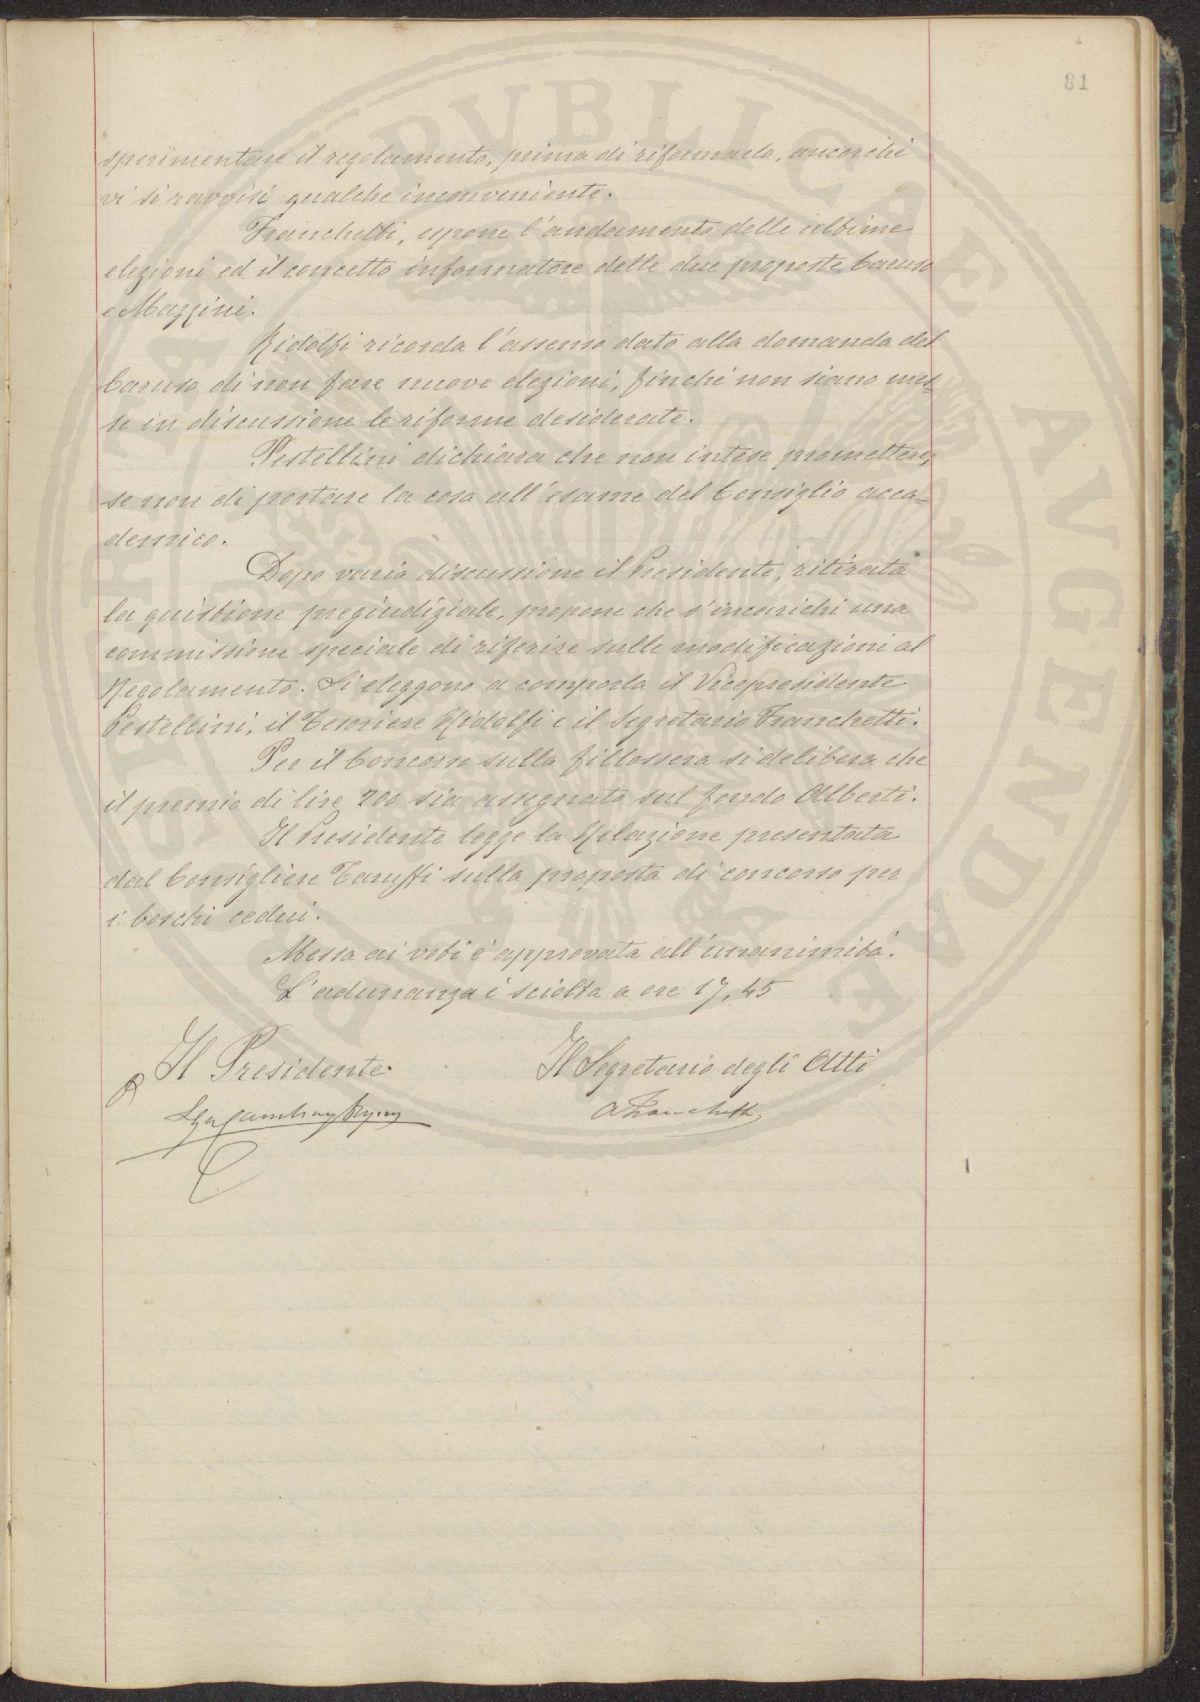 81
sperimentare il regolamento, prima di riformarlo, ancorchè
vi si ravvisi qualche inconveniente.
Franchetti, espone l'andamento delle ultime
elezioni ed il concetto informatore delle due proposte Caruso
e Mazzini.
Ridolfi ricorda l'assenso dato alla domanda del
Caruso di non fare nuove elezioni, finchè non siano mes=
se in discussione le riforme desiderate.
Pestellini dichiara che non intese promettere,
se non di portare la cosa all'esame del Consiglio acca=
demico.
Dopo varia discussione il Presidente, ritirata
la quistione pregiudiziale, propone che s'incarichi una
commissione speciale di riferire sulle modificazioni al
Regolamento. Si eleggono a comporla il Vicepresidente
Pestellini, il Tesoriere Ridolfi e il Segretario Franchetti.
Per il Concorso sulla fillossera si delibera che
il premio di lire 200 sia assegnato sul fondo Alberti.
Il Presidente legge la Relazione presentata
dal Consigliere Taruffi sulla proposta di concorso per
i boschi cedui.
Messa ai voti è approvata all'unanimità.
L'adunanza è sciolta a ore 17,45
Il Presidente
Il Segretario degli Atti
A Franchetti
PVBLICAE AVGENDAE
PROSPERITATI